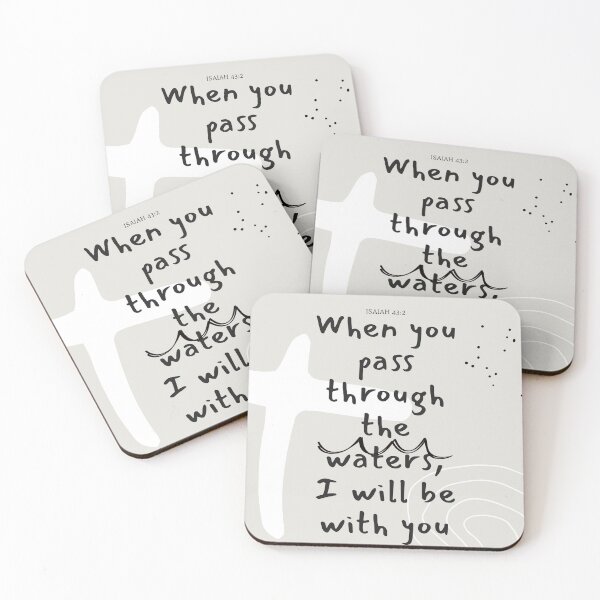 ISAIAH 43:2
When you
pass
through
ISAIAH 43:2
When you
pass
through
the
waters,
ISAIAH 43:2
When you
pass
through
the
waters
I will
with
ISAIAH 43:2
When you
pass
through
the
waters,
I will be
with you